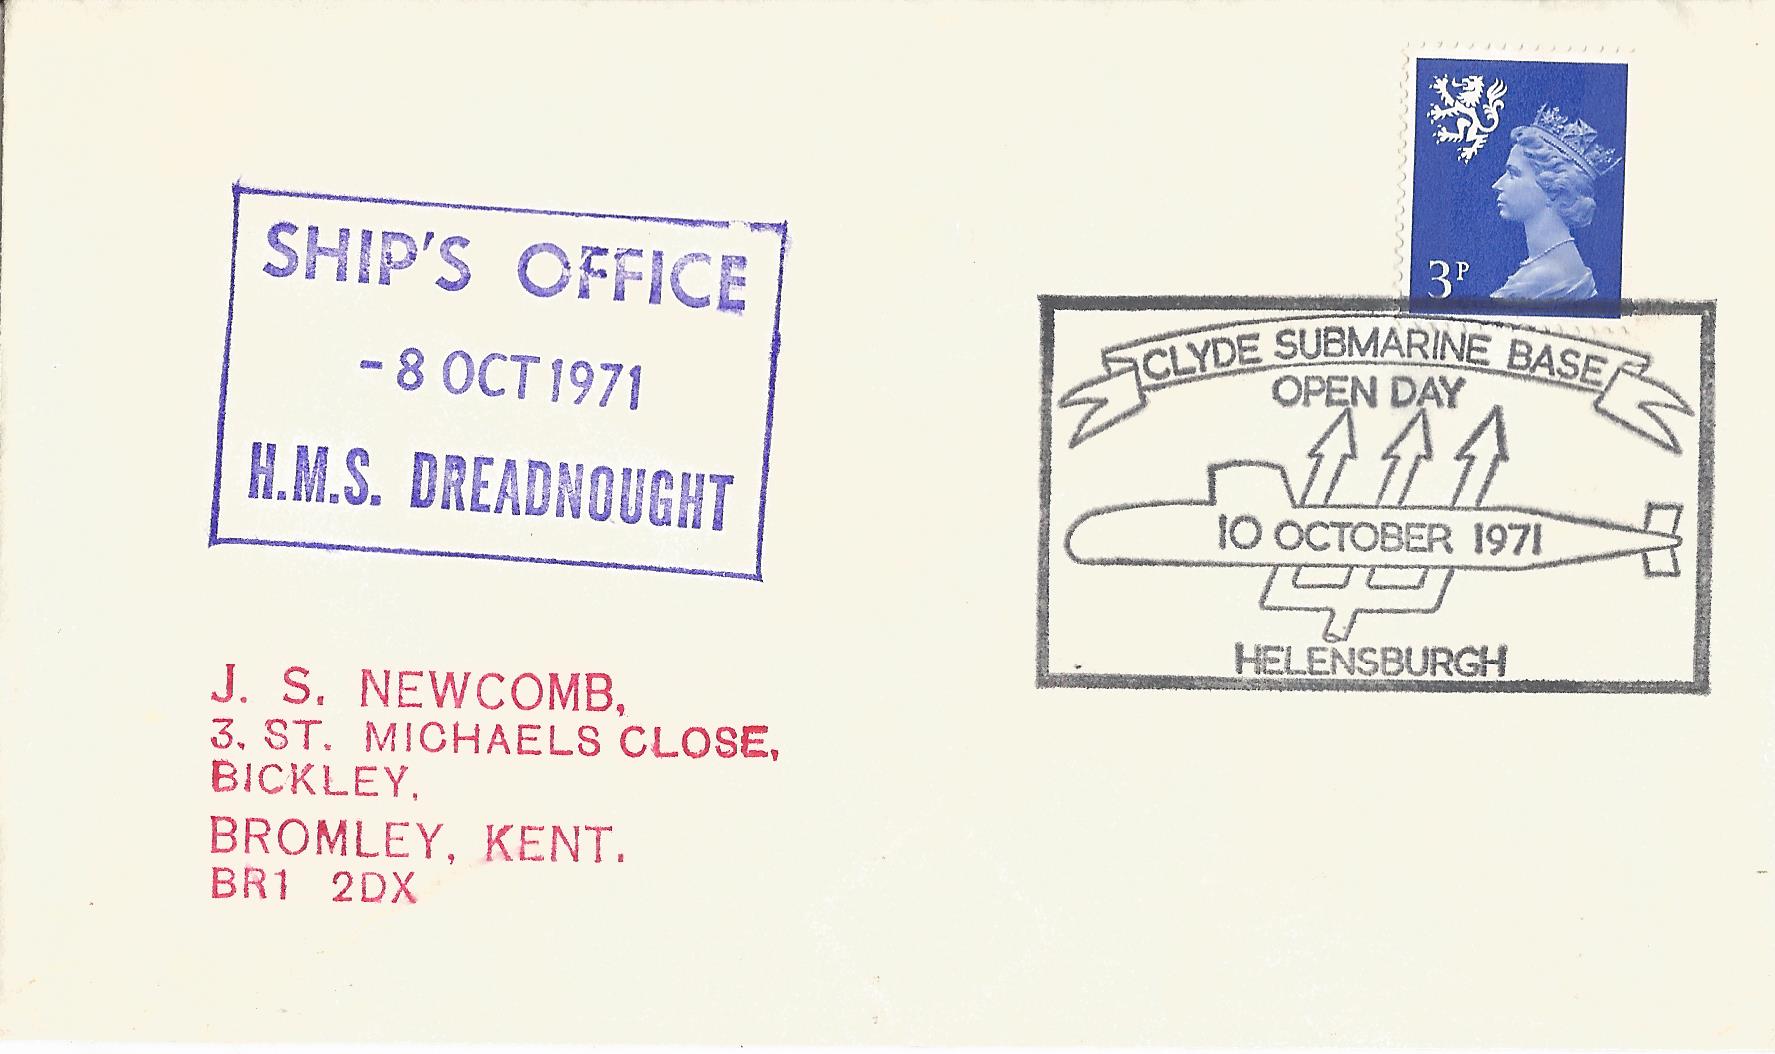 3P
SHIP'S OFFICE
-8 OCT 1971
H.M.S. DREADNOUGHT
CLYDE SUBMARINE BASE
OPEN DAY
10 OCTOBER 1971
HELENSBURGH
J. S. NEWCOMB,
3. ST. MICHAELS CLOSE,
BICKLEY,
BROMLEY, KENT.
BR1 2DX